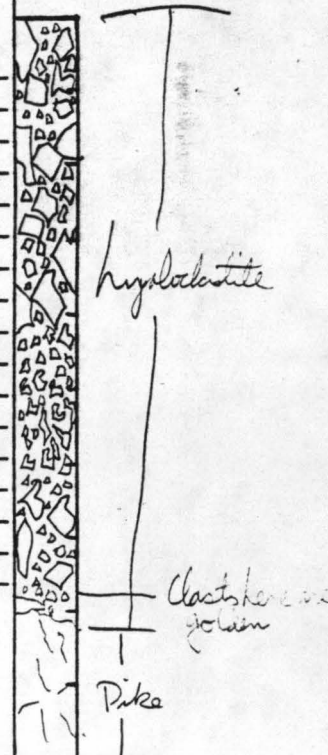 hyaloclastite
Clasts here are
golden
Dike